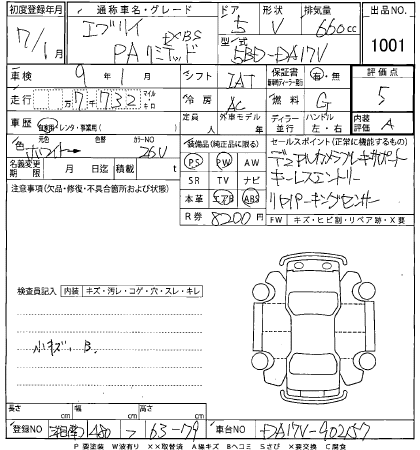 初度登録年月 通称車名・グレード ドア 形状 排気量 出品NO.
7/1 エブリイ 5 V 660cc
PAリミテッド 型式 5BD-DA17V 1001
車検 9年1月 シフト 保証書 有・無 評価点
走行 万7千732 マイル・キロ 冷房 AC 燃料 G 5
車歴 自家用・レンタ・事業用( ) 定員 人 外車モデル 年 ディーラー 並行 ハンドル 左・右 内装評価 A
色 元色 ホワイト カラーNO 26U 装備品(純正品に限る) セールスポイント(正常に機能するもの)
名義変更期限 月 日 迄 積載 t PS PW AW デュアルカメラブレーキサポート
注意事項(欠品・修復・不具合箇所および状態) SR TV ナビ キーレスエントリー
本革 エアB ABS リヤパーキングセンサー
R券 8200円 FW キズ・ヒビ割・リペア跡・X要
検査員記入 内装 キズ・汚レ・コゲ・穴・スレ・キレ
小キズ、B
長さ cm 幅 cm 高さ cm
登録NO 480 63-79 車台NO DA17V-902457
P 要塗装 W波有り ××取替済 A線キズ Bヘコミ Sさび X要交換 C腐食